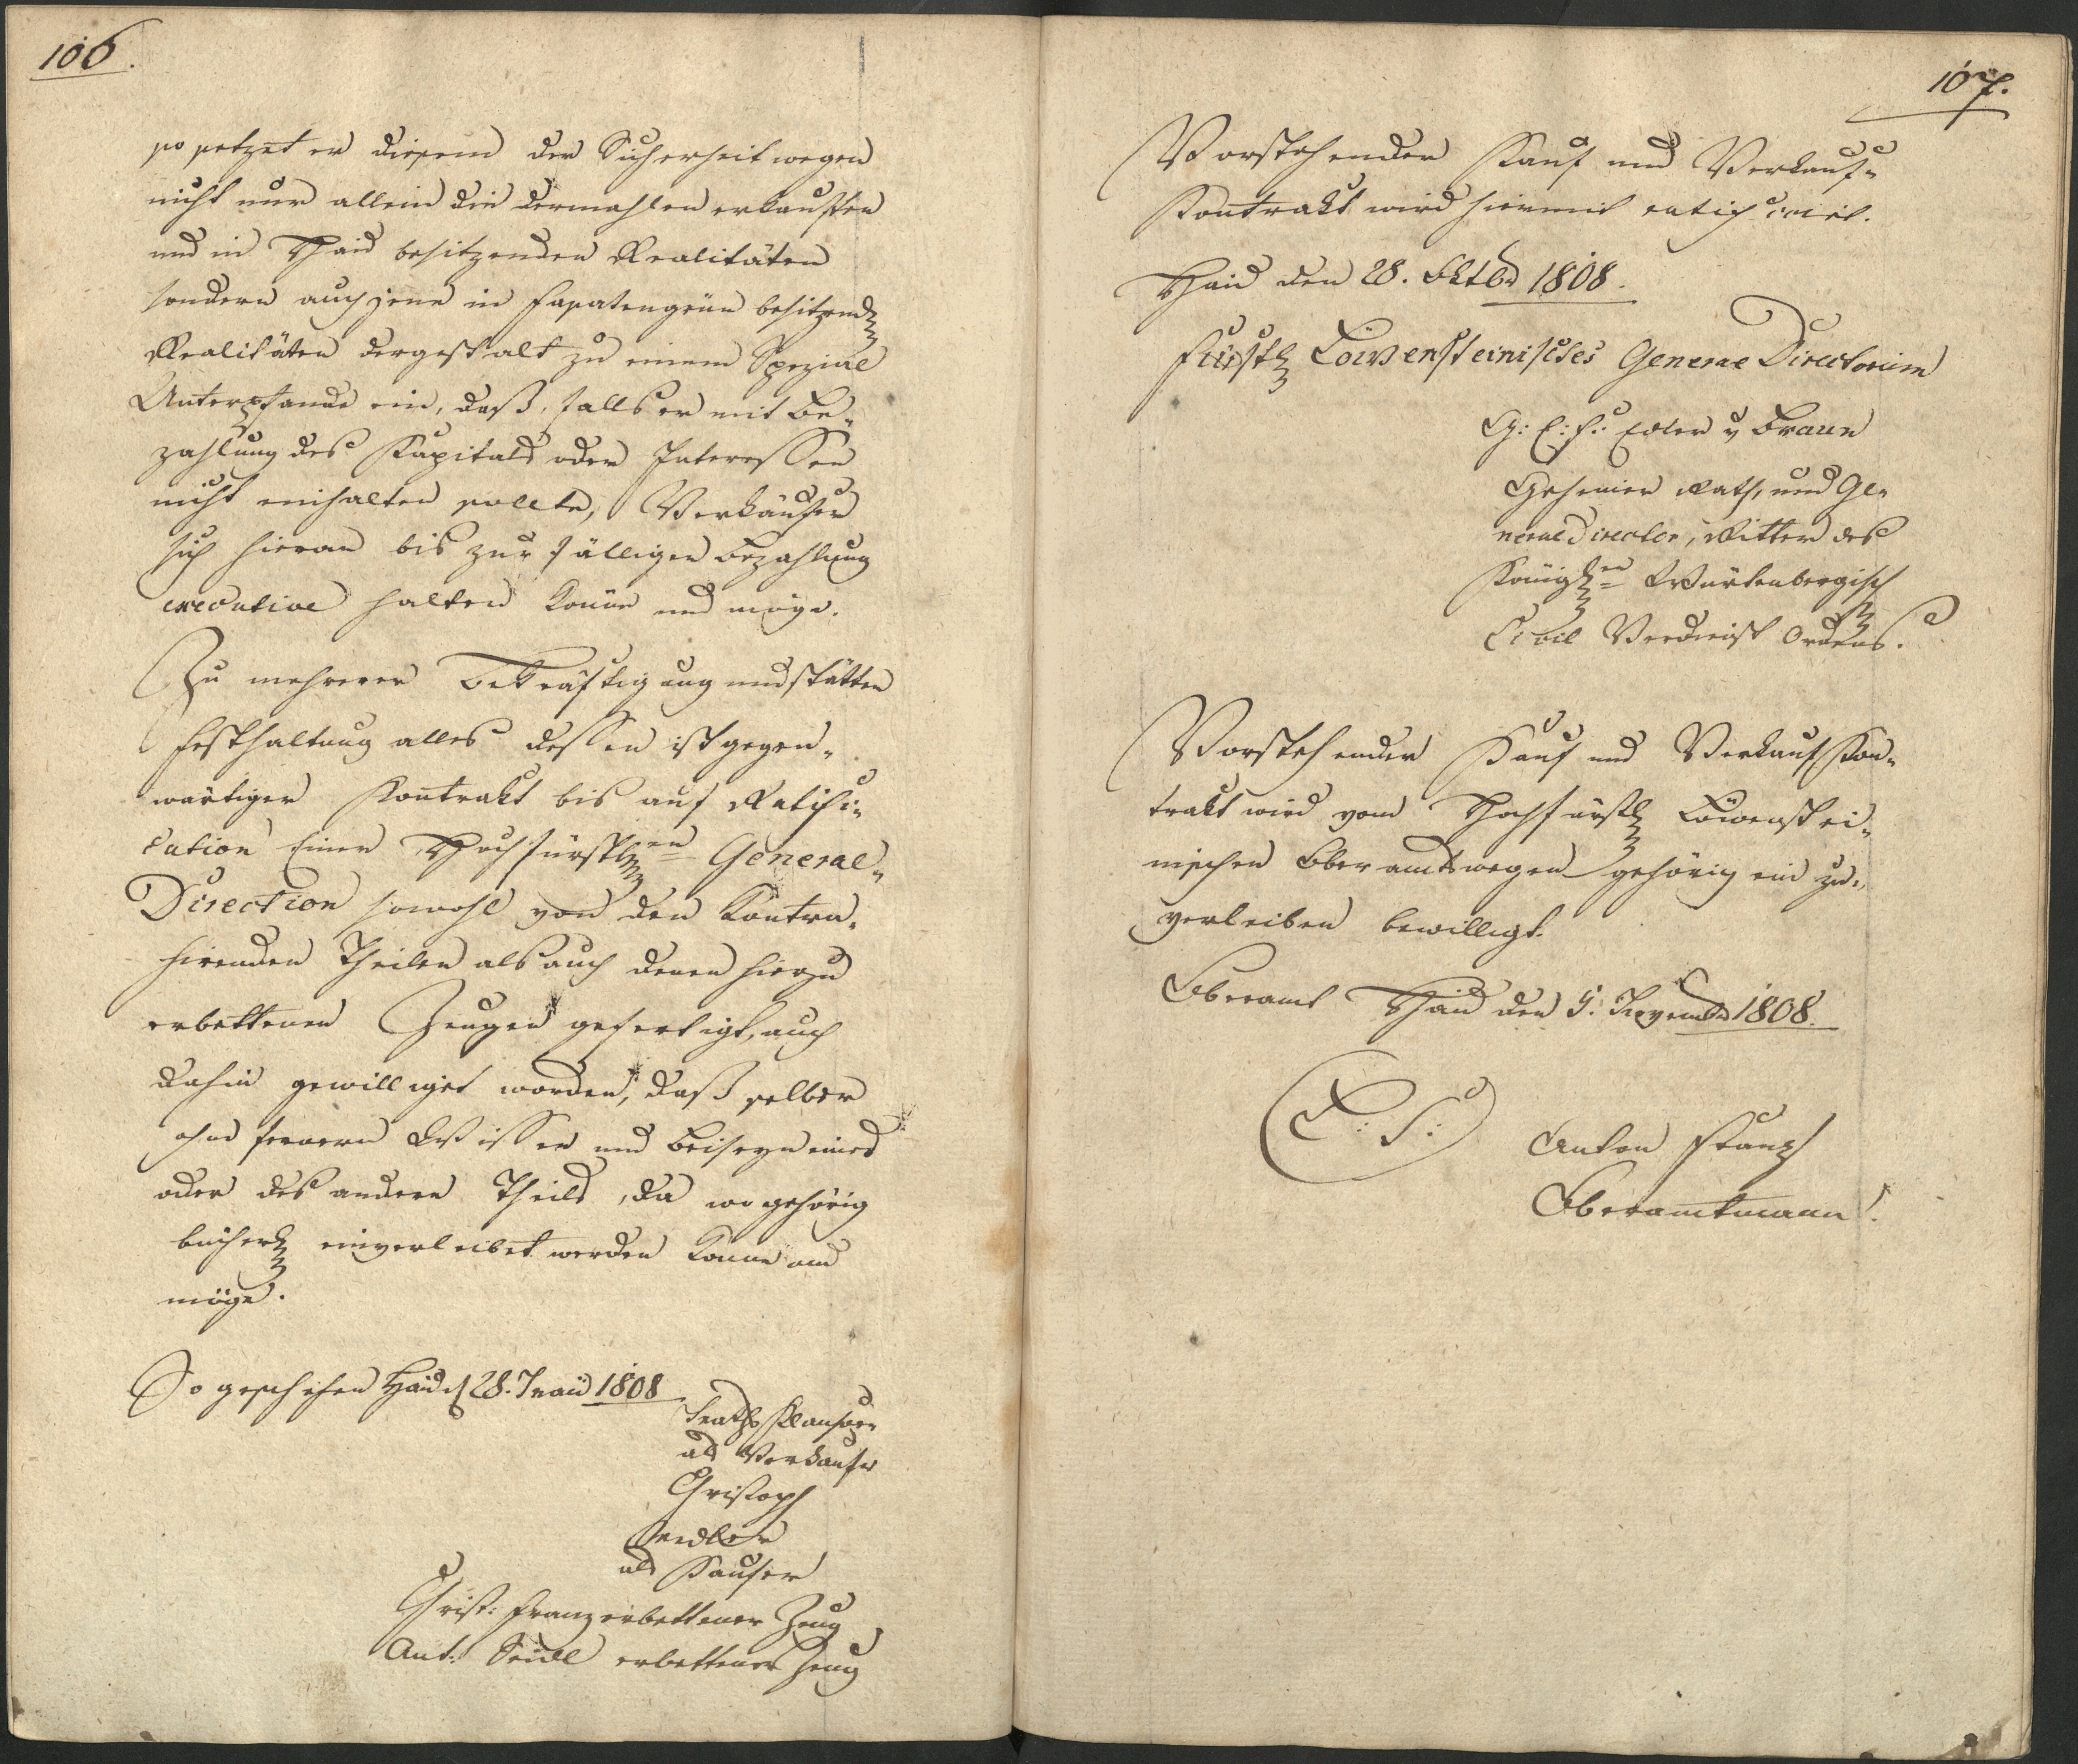 106.
so setzet er diesem der Sicherheit wegen
nicht nur allein die dermahlen erkauften
und in Haid besitzenden Realitäten
sondern auch jene in besitzend
Realitäten dergestalt zu einem Spezial
Unterpfande ein, daß, falls er mit Be„
zahlung des Kapitals oder Interessen
nicht einhalten sollte, Verkäufer
sich hieran bis zur fälligen Bezahlung
executive halten könne und möge.
Zu mehrerer Bekräftigung und stätten
Festhaltung alles dessen ist gegen„
wärtiger Kontrakt bis auf Ratifi„
cation Einer Hochfürstl en General„
Direction sowohl von den Kontra„
hirenden Theilen als auch denen hierzu
erbettenen Zeugen gefertigt, auch
dahin gewilliget worden, daß selber
ohne fernern Wissen und Beiseyn eines
oder des andern Theils, da wo gehörig
bücherl einverleibet werden könne und
möge.
So geschehen Haid d 28. 1808
als Verkaufer
Christoph
Seidler
als Kaufer
Christ: Franz erbettener Zeug
Ant: Seidl erbettener Zeug
107.
Vorstehender Kauf und Verkauf„
Kontrakt wird hiermit
Haid den 28. Oktbr 1808.
Fürstl Löwensteinisches General Directorium
G: E: F: Edler v Braun
Geheimer Rath, und Ge„
neral Director, Ritter des
Königl en Würtenbergisch
Civil Verdienst Ordens.
Vorstehender Kauf und Verkauf Kon„
trakt wird vom Hochfürstl Löwenstei„
nischen Oberamtswegen gehörig ein zu„
verleiben bewilligt.
Oberamt Haid den 5: Novembr 1808.
L: S:
Anton Franz
Oberamtmann.